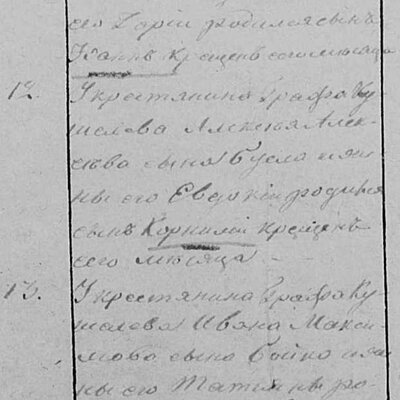 его Дарiи родился сынъ
Иоаннъ крещенъ сего мѣсяца
12. У крестьянина Графа Ку-
шелева Алексѣя Алек-
сѣева сына Бусло и же-
ны его Евдокiи родился
сынъ Корнилiй крещенъ
сего мѣсяца
13. У крестьянина Графа Ку-
шелева Ивана Макси-
мова сына Бойко и же-
ны его Татiяны ро-